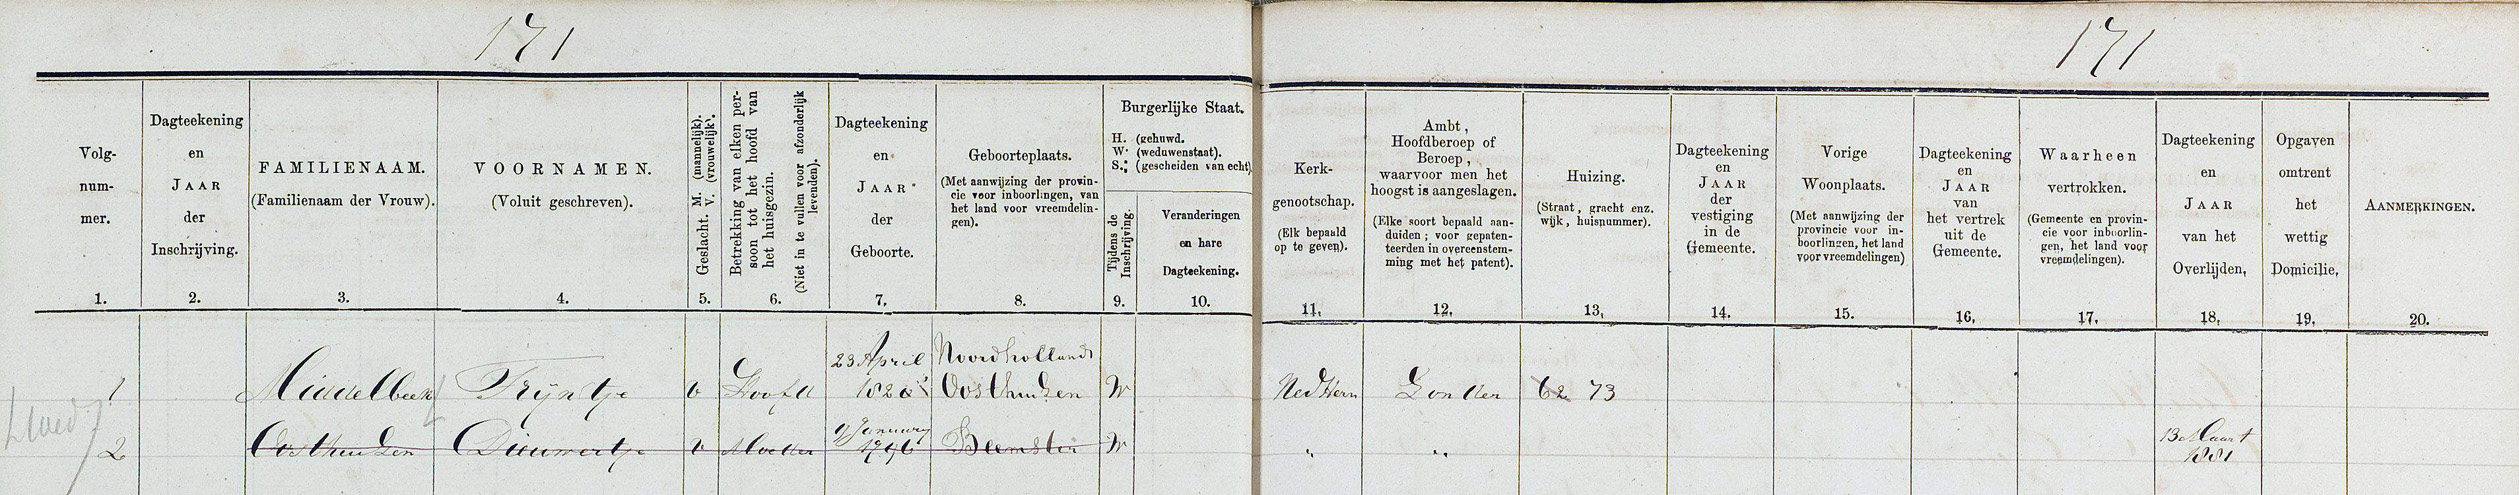 171
171
Volg-
num-
mer.
1.
Dagteekening
en
JAAR
der
Inschrijving.
2.
FAMILIENAAM.
(Familienaam der Vrouw).
3.
VOORNAMEN.
(Voluit geschreven).
4.
Geslacht. M. (mannelijk).
V. (vrouwelijk).
5.
Betrekking van elken per-
soon tot het hoofd van
het huisgezin.
(Niet in te vullen voor afzonderlijk
levenden).
6.
Dagteekening
en
JAAR
der
Geboorte.
7.
Geboorteplaats.
(Met aanwijzing der provin-
cie voor inboorlingen, van
het land voor vreemdelin-
gen).
8.
Burgerlijke Staat.
H. (gehuwd.
W. (weduwenstaat).
S. (gescheiden van echt).
Tijdens de
Inschrijving.
9.
Veranderingen
en hare
Dagteekening.
10.
Kerk-
genootschap.
(Elk bepaald
op te geven).
11.
Ambt,
Hoofdberoep of
Beroep,
waarvoor men het
hoogst is aangeslagen.
(Elke soort bepaald aan-
duiden; voor gepaten-
teerden in overeenstem-
ming met het patent).
12.
Huizing.
(Straat, gracht enz.
wijk, huisnummer).
13.
Dagteekening
en
JAAR
der
vestiging
in de
Gemeente.
14.
Vorige
Woonplaats.
(Met aanwijzing der
provincie voor in-
boorlingen, het land
voor vreemdelingen)
15.
Dagteekening
en
JAAR
van
het vertrek
uit de
Gemeente.
16.
Waarheen
vertrokken.
(Gemeente en provin-
cie voor inboorlin-
gen, het land voor
vreemdelingen).
17.
Dagteekening
en
JAAR
van het
Overlijden,
18.
Opgaven
omtrent
het
wettig
Domicilie,
19.
AANMERKINGEN.
20.
23 April Noordholland
1 Middelbeek Trijntje v Hoofd Oosthuizen W Ned Herv Zonder 62 73
2 Oosthuizen Dieuwertje v Moeder 2 January 1796 Beemster W " " 13 Maart 1881